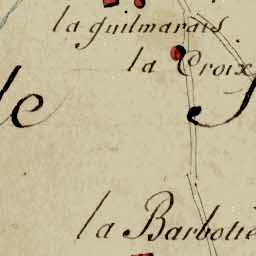 la guilmarais
la Croix
le
la Barbotiè